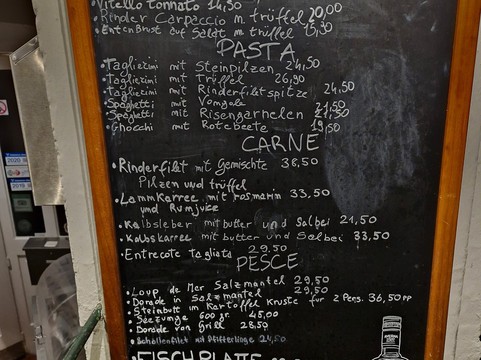 Vitello tonnato 14,50
Rinder Carpaccio m. trüffel 20,00
Entenbrust auf Salat m. trüffel 15,50
PASTA
• Taglierini mit Steinpilzen 24,50
• Taglierini mit Trüffel 26,90
• taglierini mit Rinderfiletspitze 24,50
• Spaghetti mit Vongole 21,50
• Spaghetti mit Riesengarnelen 21,50
• Gnocchi mit Rotebeete 19,50
CARNE
• Rinderfilet mit gemischte 38,50
Pilzen und trüffel
• Lammkarree mit rosmarin 33,50
und Rumjuice
• Kalbsleber mit butter und Salbei 21,50
• Kalbskarree mit butter und Salbei 33,50
• Entrecote tagliata 29,50
PESCE
• Loup de Mer Salzmantel 29,50
• Dorade in Salzmantel 29,50
• Steinbutt im Kartoffel Kruste für 2 Pers. 36,50 pp
• Seezunge 600 gr. 45,00
• Dorade von Grill 28,50
• Schollenfilet mit Pfifferlinge 24,50
• FISCHPLATTE